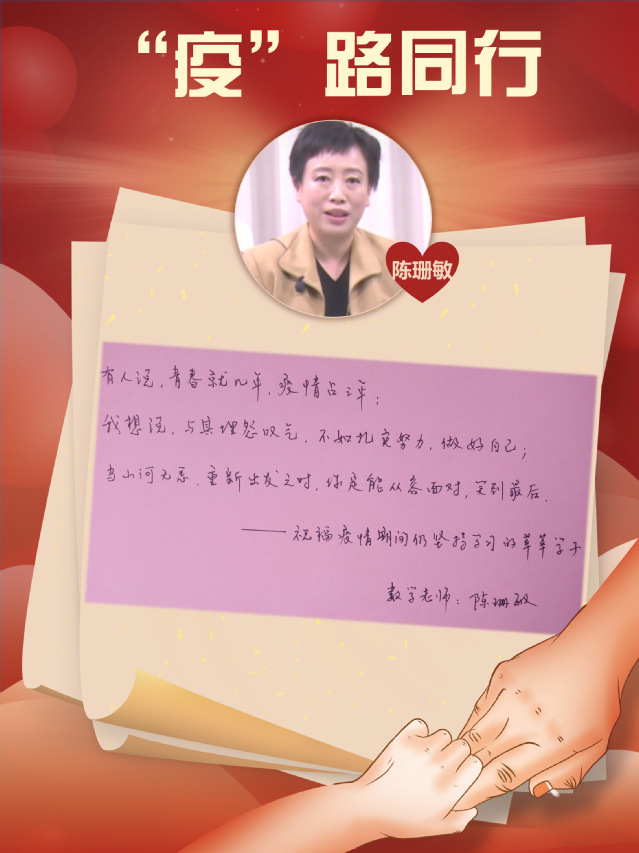 “疫”路同行
陈珊敏
有人说，青春就几年，疫情占三年；
我想说，与其埋怨叹气，不如扎实努力，做好自己；
当山河无恙，重新出发之时，你定能从容面对，笑到最后。
——祝福疫情期间仍坚持学习的莘莘学子
数学老师：陈珊敏